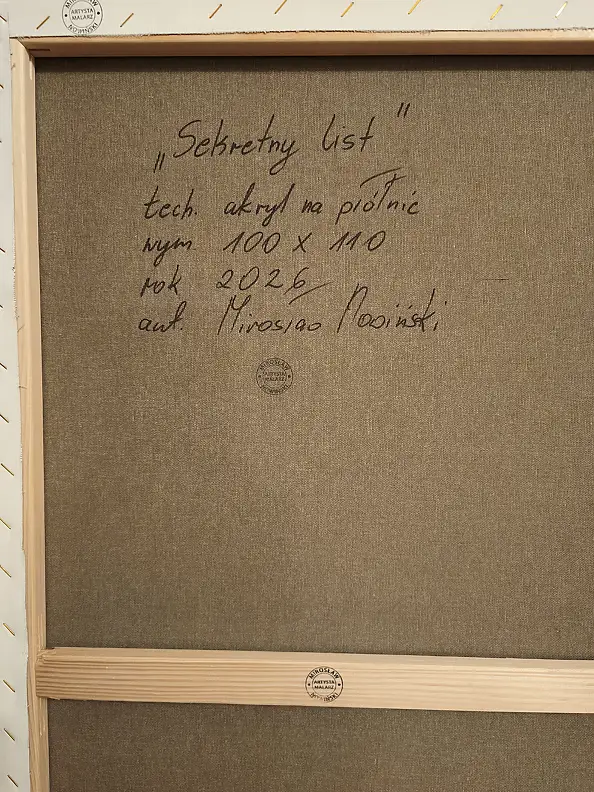 MIROSŁAW
ARTYSTA
MALARZ
NOWIŃSKI
„Sekretny list”
tech. akryl na płótnie
wym 100 x 110
rok 2026
aut. Mirosław Nowiński
MIROSŁAW
ARTYSTA
MALARZ
NOWIŃSKI
MIROSŁAW
ARTYSTA
MALARZ
NOWIŃSKI